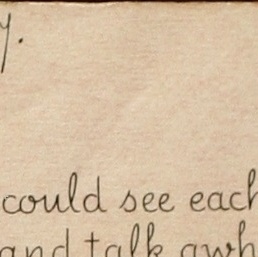 y.
could see each
and talk awh